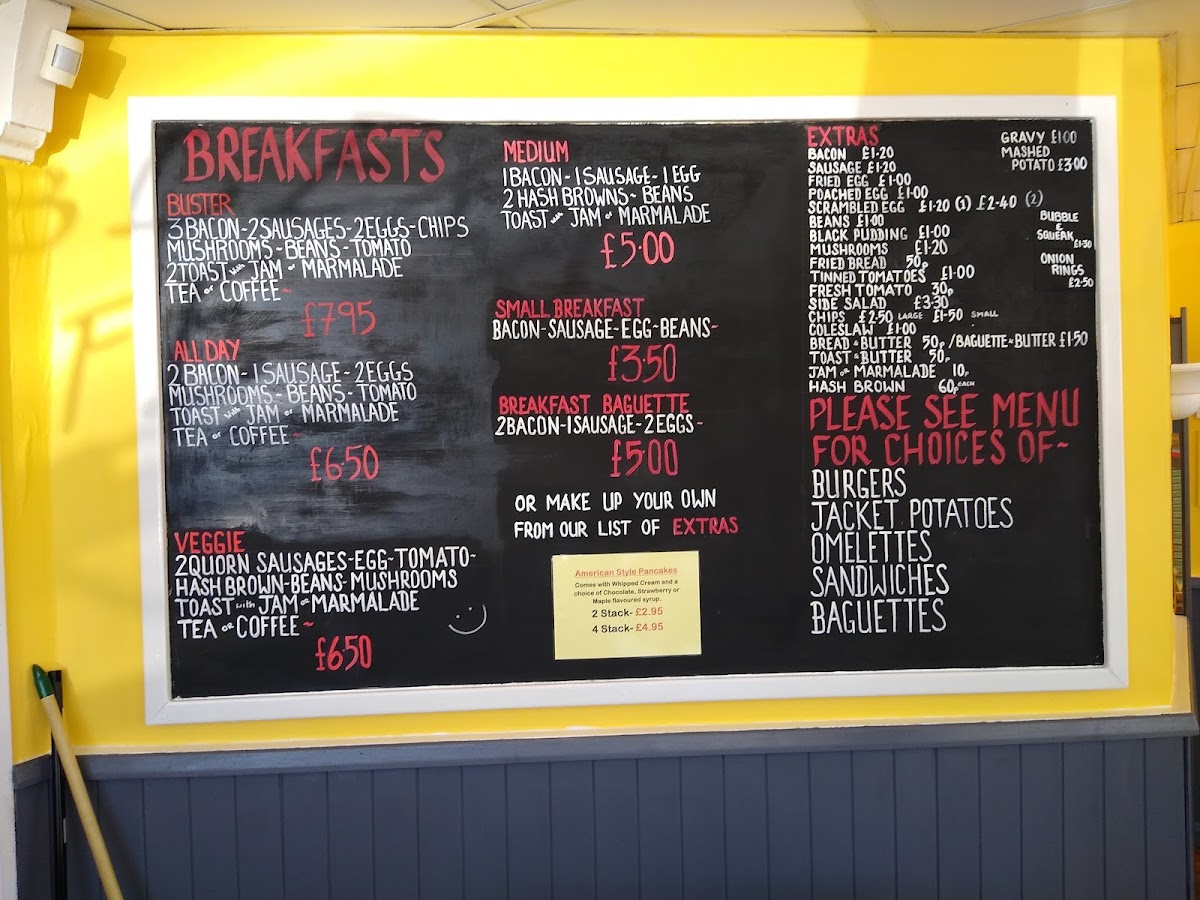 BREAKFASTS
BUSTER
3 BACON-2 SAUSAGES-2 EGGS-CHIPS
MUSHROOMS-BEANS-TOMATO
2 TOAST with JAM or MARMALADE
TEA or COFFEE~
£7.95
ALL DAY
2 BACON-1 SAUSAGE-2 EGGS
MUSHROOMS-BEANS-TOMATO
TOAST with JAM or MARMALADE
TEA or COFFEE~
£6.50
VEGGIE
2 QUORN SAUSAGES-EGG-TOMATO-
HASH BROWN-BEANS-MUSHROOMS
TOAST with JAM or MARMALADE
TEA OR COFFEE~
£6.50
MEDIUM
1 BACON-1 SAUSAGE-1 EGG
2 HASH BROWNS~BEANS
TOAST with JAM or MARMALADE
£5.00
SMALL BREAKFAST
BACON-SAUSAGE-EGG-BEANS~
£3.50
BREAKFAST BAGUETTE
2 BACON-1 SAUSAGE-2 EGGS~
£5.00
OR MAKE UP YOUR OWN
FROM OUR LIST OF EXTRAS
American Style Pancakes
Comes with Whipped Cream and a
choice of Chocolate, Strawberry or
Maple flavoured syrup.
2 Stack- £2.95
4 Stack- £4.95
EXTRAS
BACON £1.20
SAUSAGE £1.20
FRIED EGG £1.00
POACHED EGG £1.00
SCRAMBLED EGG £1.20 (1) £2.40 (2)
BEANS £1.00
BLACK PUDDING £1.00
MUSHROOMS £1.20
FRIED BREAD 50p
TINNED TOMATOES £1.00
FRESH TOMATO 30p
SIDE SALAD £3.30
CHIPS £2.50 LARGE £1.50 SMALL
COLESLAW £1.00
BREAD & BUTTER 50p / BAGUETTE & BUTTER £1.50
TOAST & BUTTER 50p
JAM or MARMALADE 10p
HASH BROWN 60p each
GRAVY £1.00
MASHED
POTATO £3.00
BUBBLE
&
SQUEAK
£1.30
ONION
RINGS
£2.50
PLEASE SEE MENU
FOR CHOICES OF~
BURGERS
JACKET POTATOES
OMELETTES
SANDWICHES
BAGUETTES